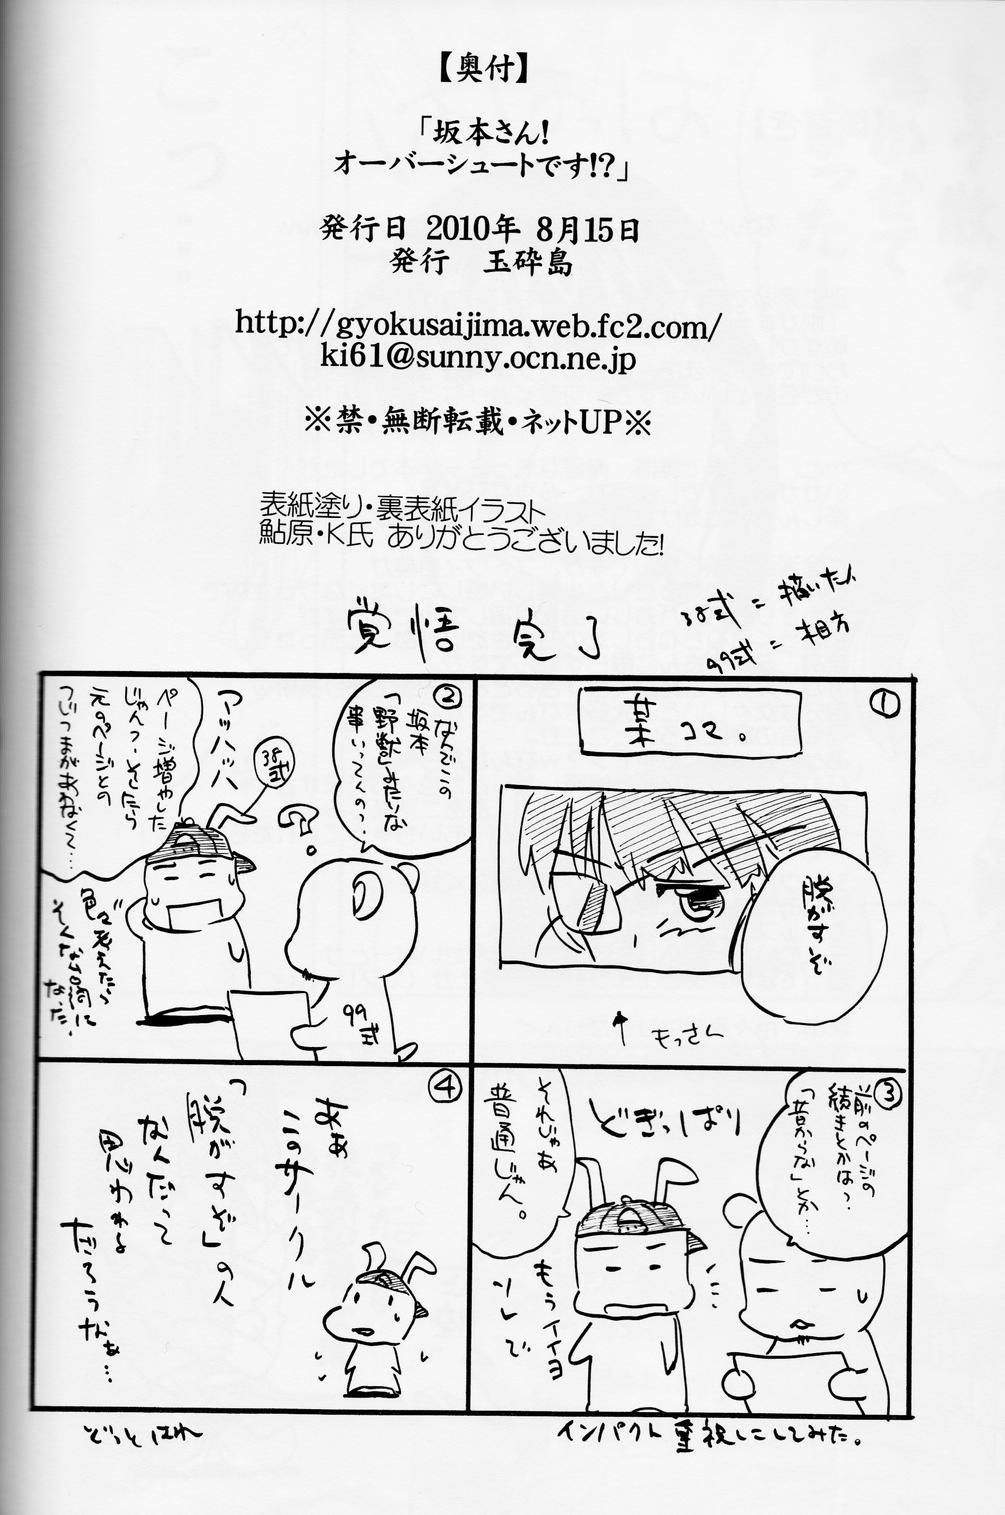 【奥付】
「坂本さん!
オーバーシュートです!?」
発行日 2010年 8月15日
発行 玉砕島
http://gyokusaijima.web.fc2.com/
ki61@sunny.ocn.ne.jp
※禁・無断転載・ネットUP※
表紙塗り・裏表紙イラスト
鮎原・K氏 ありがとうございました!
覚悟 完了
38式 = 描いた人
99式 = 相方
①
某コマ。
脱がすぞ
もっさん
②
なんでこの
坂本
「野獣」みたいな
事いってんの?
38式
アッハッハ
ページ増やした
じゃんっ…そしたら
元のページとの
つじつまがあわなくて…
色々考えたら
そんな台詞に
なった。
99式
③
前のページの
続きとかは?
「昔からな」とか…
どぎっぱり
それじゃあ
普通じゃん。
もうイイヨ
ソレで
④
ああ
このサークル
「脱がすぞ」の人
なんだって
思われる
だろうなぁ…
インパクト重視にしてみた。
どっとはれ